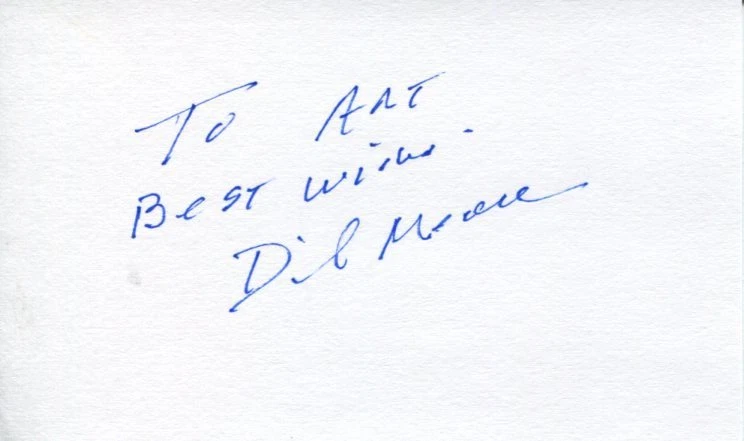 To Art
Best Wishes.
Moore